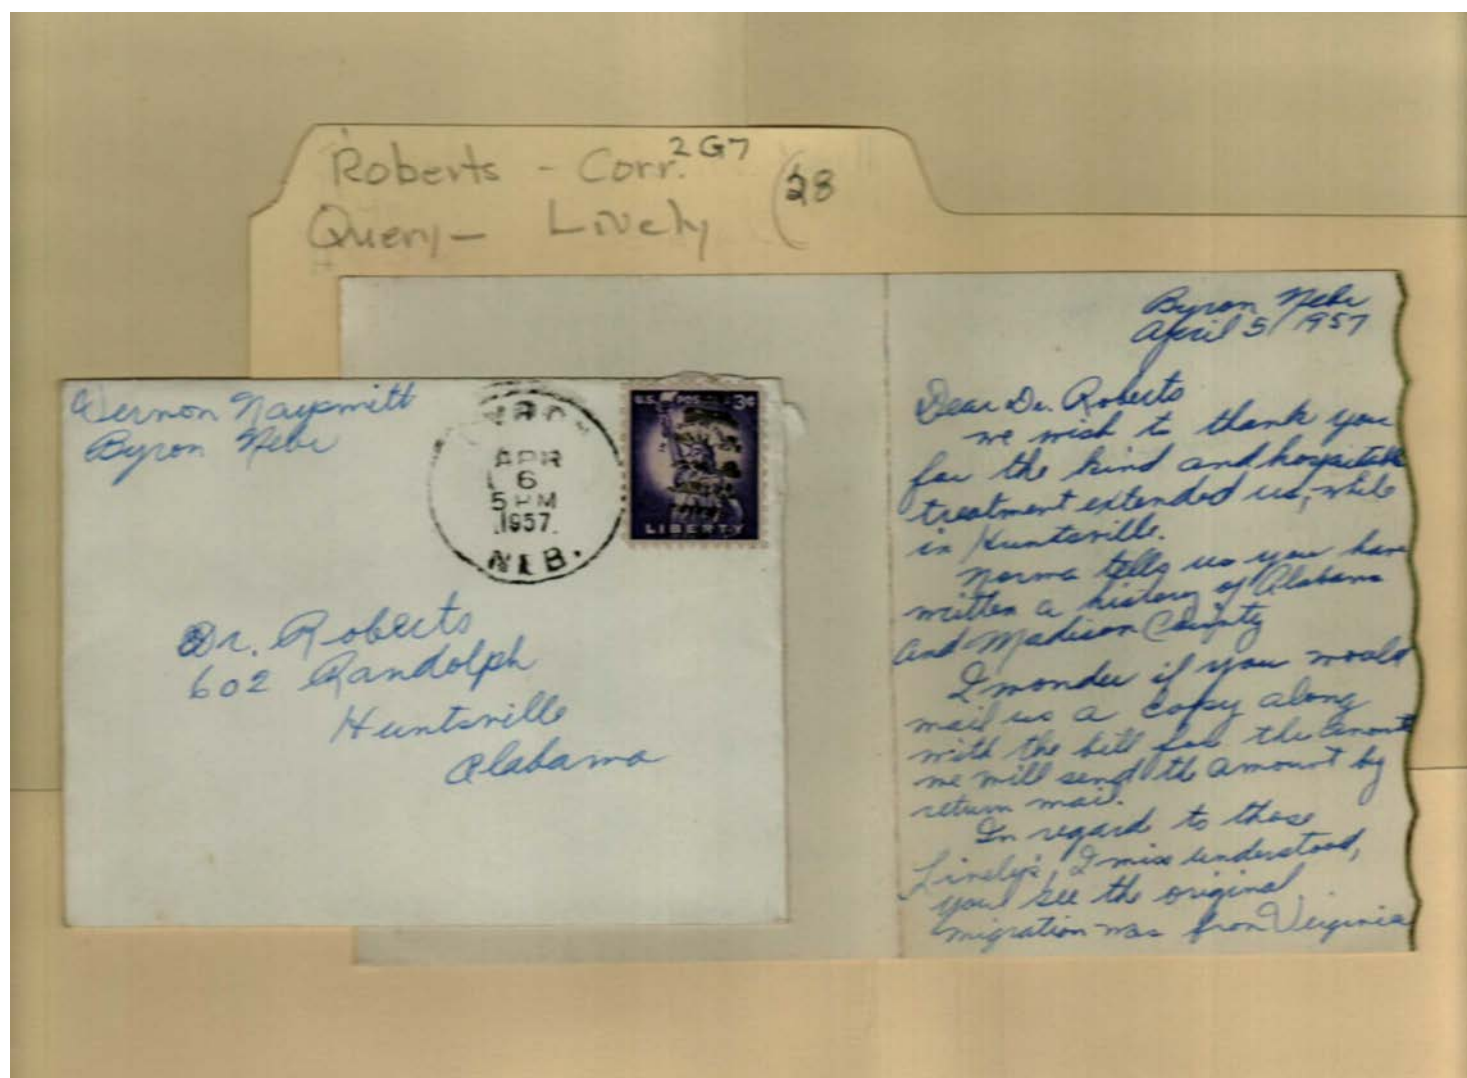 Roberts - Corr. 2G7
Query - Lively (28
Vernon Naysmith
Byron Nebr
BYRON
APR
6
5 PM
1957
NEB.
U.S. POSTAGE 3¢
LIBERTY
Dr. Roberts
602 Randolph
Huntsville
Alabama
Byron Nebr
April 5, 1957
Dear Dr. Roberts
we wish to thank you
for the kind and hospitable
treatment extended us, while
in Huntsville.
Norma tells us you have
written a history of Alabama
and Madison County
I wonder if you would
mail us a copy along
with the bill for the amount
we will send the amount by
return mail.
In regard to those
Lively's, I miss understood,
you see the original
migration was from Virginia